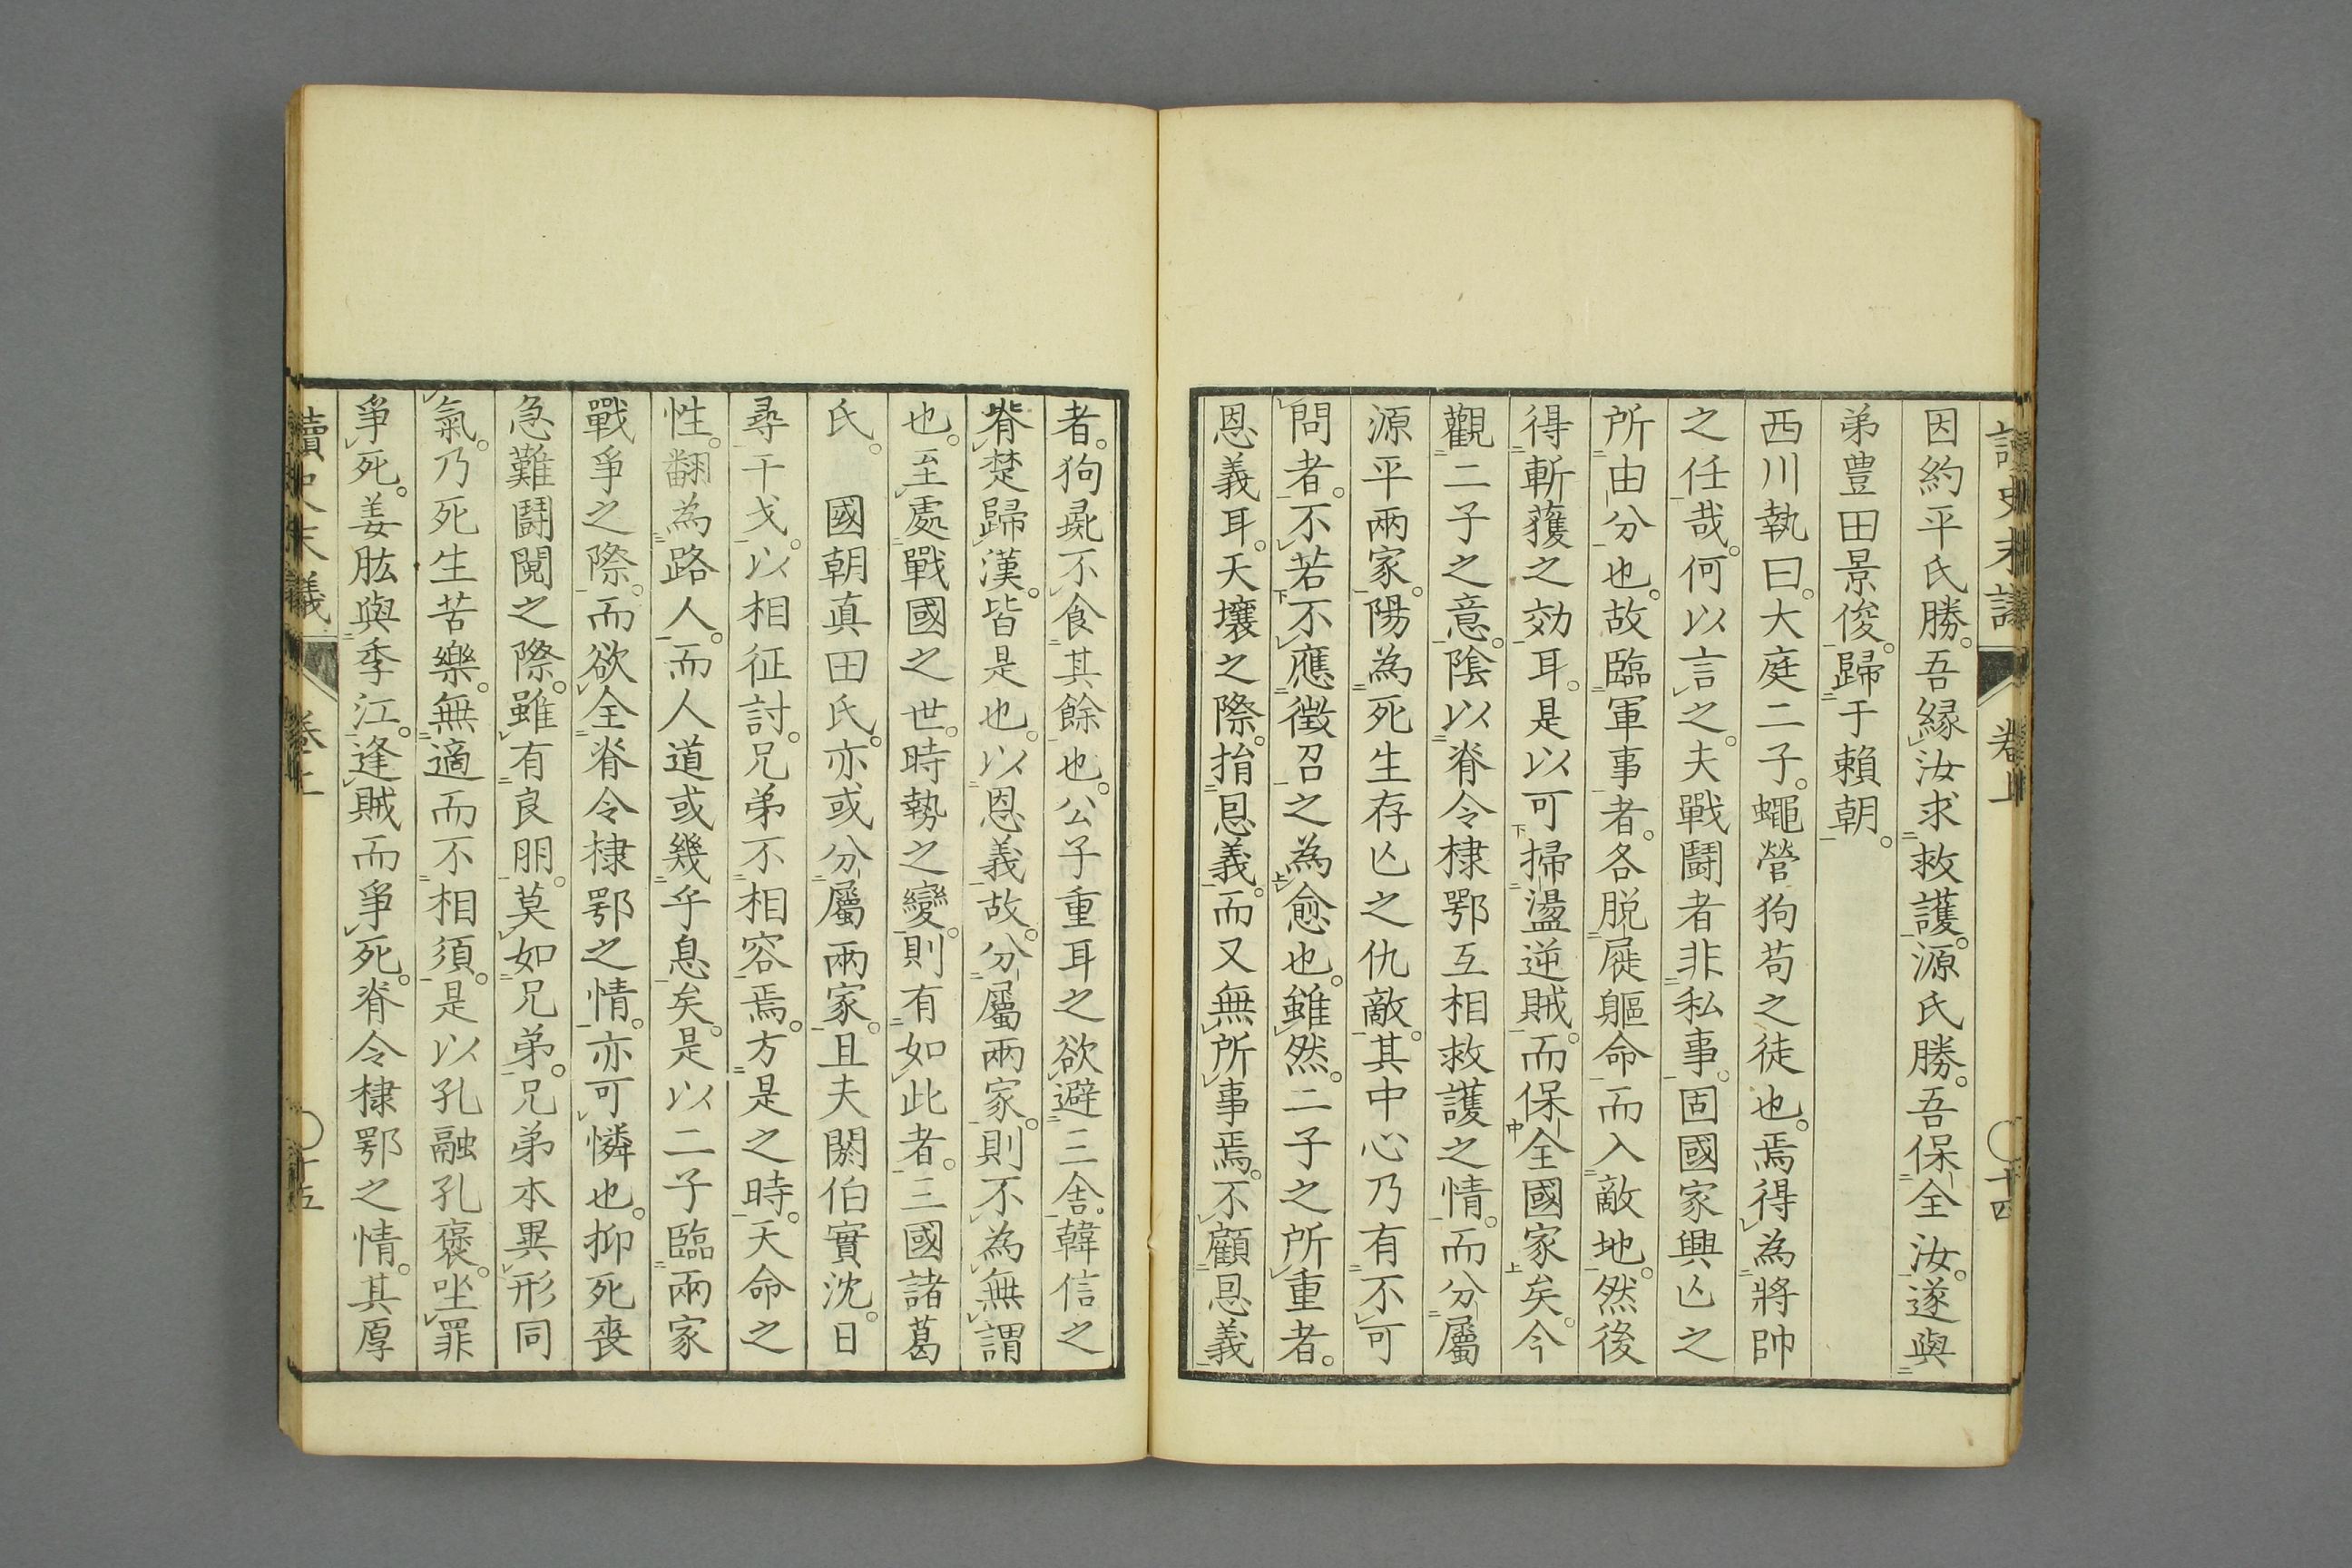 因約平氏勝。吾縁汝求救護。源氏勝。吾保全汝。遂與
弟豊田景俊。歸于賴朝。
西川執曰。大庭二子。蠅營狗苟之徒也。焉得為將帥
之任哉。何以言之。夫戰鬪者非私事。固國家興亾之
所由分也。故臨軍事者。各脱屣軀命而入敵地。然後
得斬獲之効耳。是以可掃盪逆賊。而保全國家矣。今
觀二子之意。陰以脊令棣鄂互相救護之情。而分屬
源平兩家。陽為死生存亾之仇敵。其中心乃有不可
問者。不若不應徵召之為愈也。雖然。二子之所重者。
恩義耳。天壤之際。捐恩義。而又無所事焉。不顧恩義
者。狗彘不食其餘也。公子重耳之欲避三舍。韓信之
背楚歸漢。皆是也。以恩義故。分屬兩家。則不為無謂
也。至處戰國之世。時勢之變。則有如此者。三國諸葛
氏。國朝真田氏。亦或分屬兩家。且夫閼伯實沈。日
尋干戈。以相征討。兄弟不相容焉。方是之時。天命之
性。翻為路人。而人道或幾乎息矣。是以二子臨兩家
戰爭之際。而欲全脊令棣鄂之情。亦可憐也。抑死喪
急難鬪鬩之際。雖有良朋。莫如兄弟。兄弟本異形同
氣。乃死生苦樂。無適而不相須。是以孔融孔褒。坐罪
爭死。姜肱與季江。逢賊而爭死。脊令棣鄂之情。其厚
讀史末議 卷上 十四
讀史末議 卷上 十五